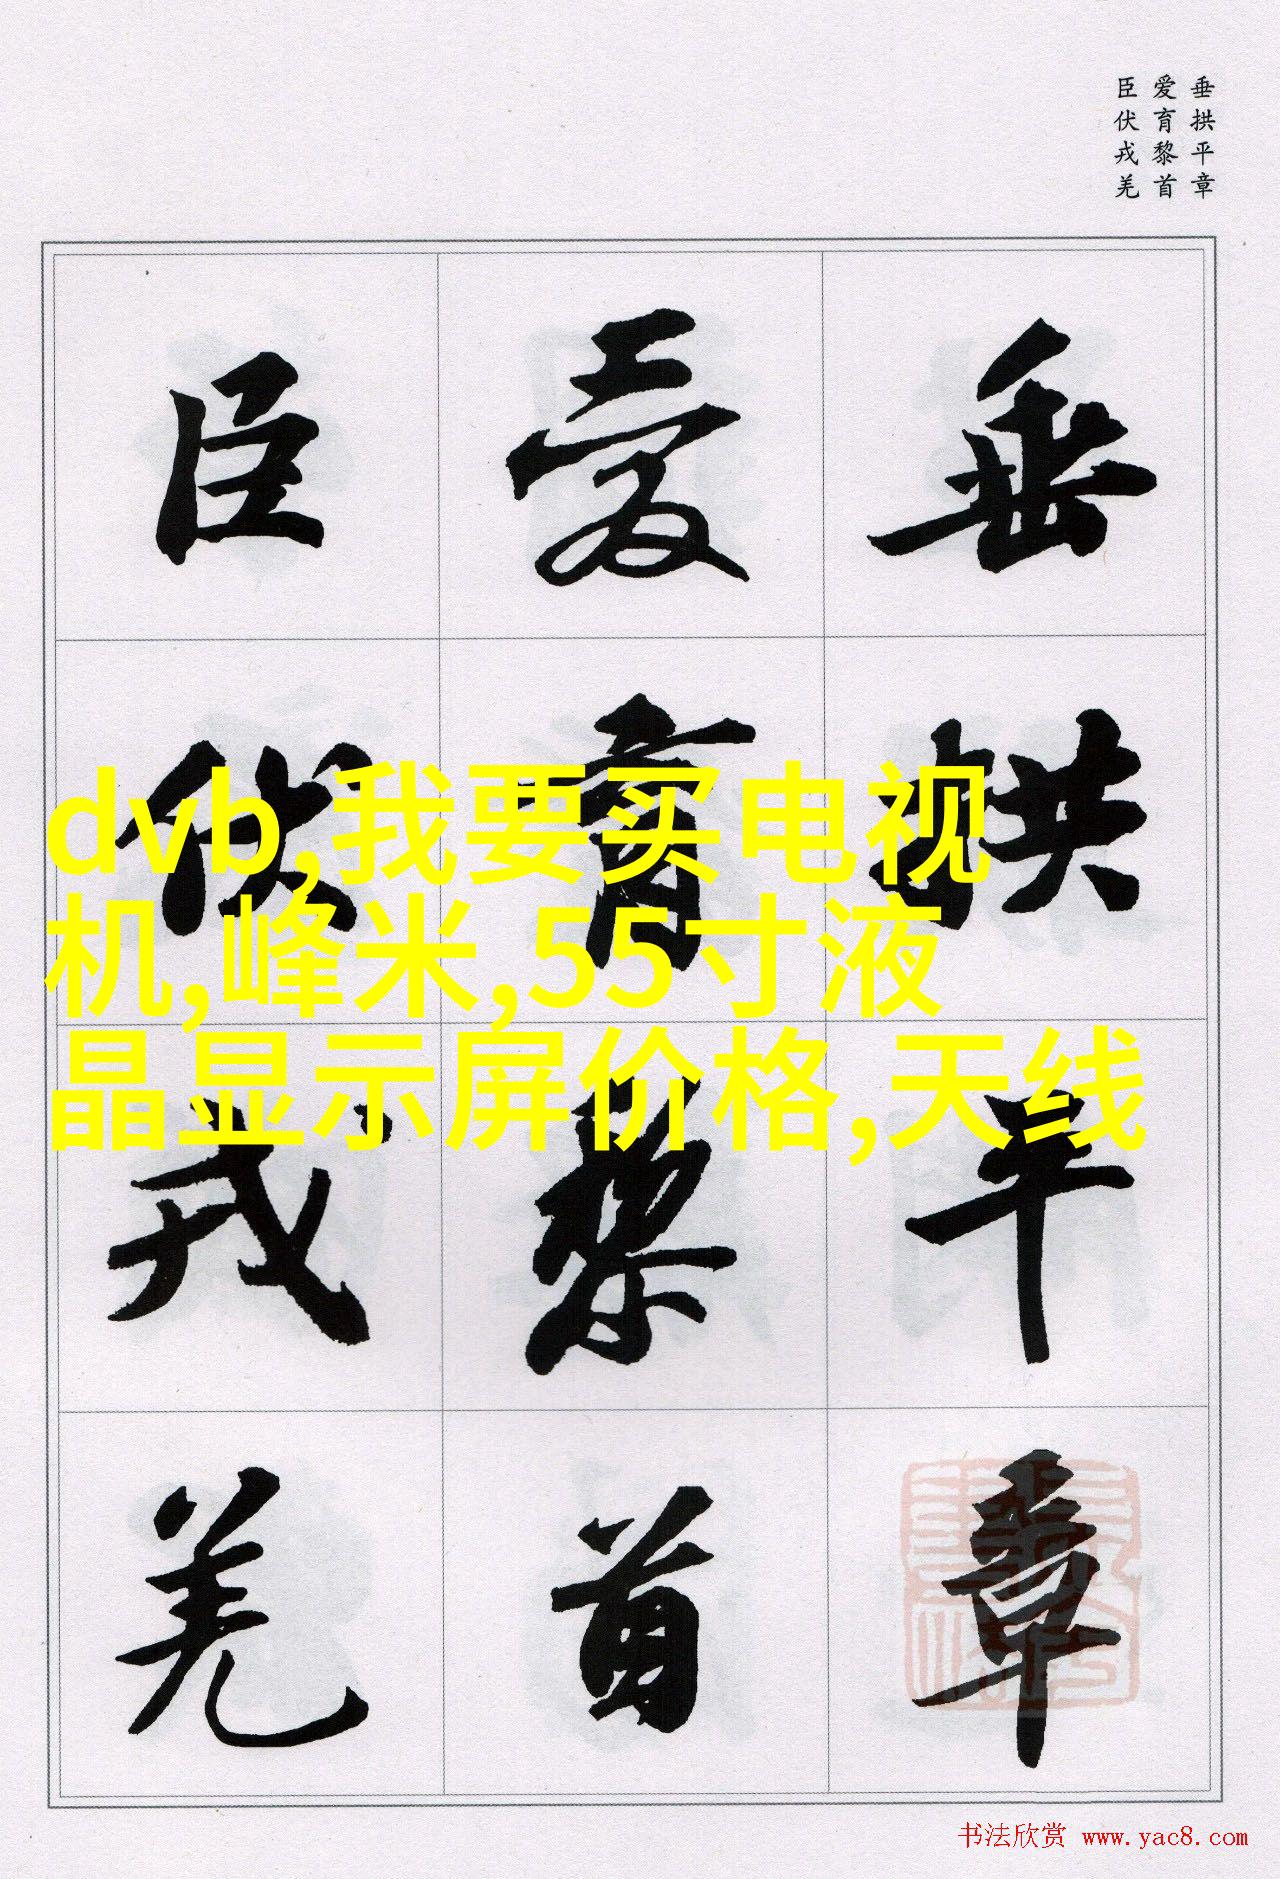 垂拱平章
爱育黎首
臣伏戎羌
垂拱平章
爱育黎首
臣伏戎羌
dvb,我要买电视
机,峰米,55寸液
晶显示屏价格,天线
书法欣赏 www.yac8.com